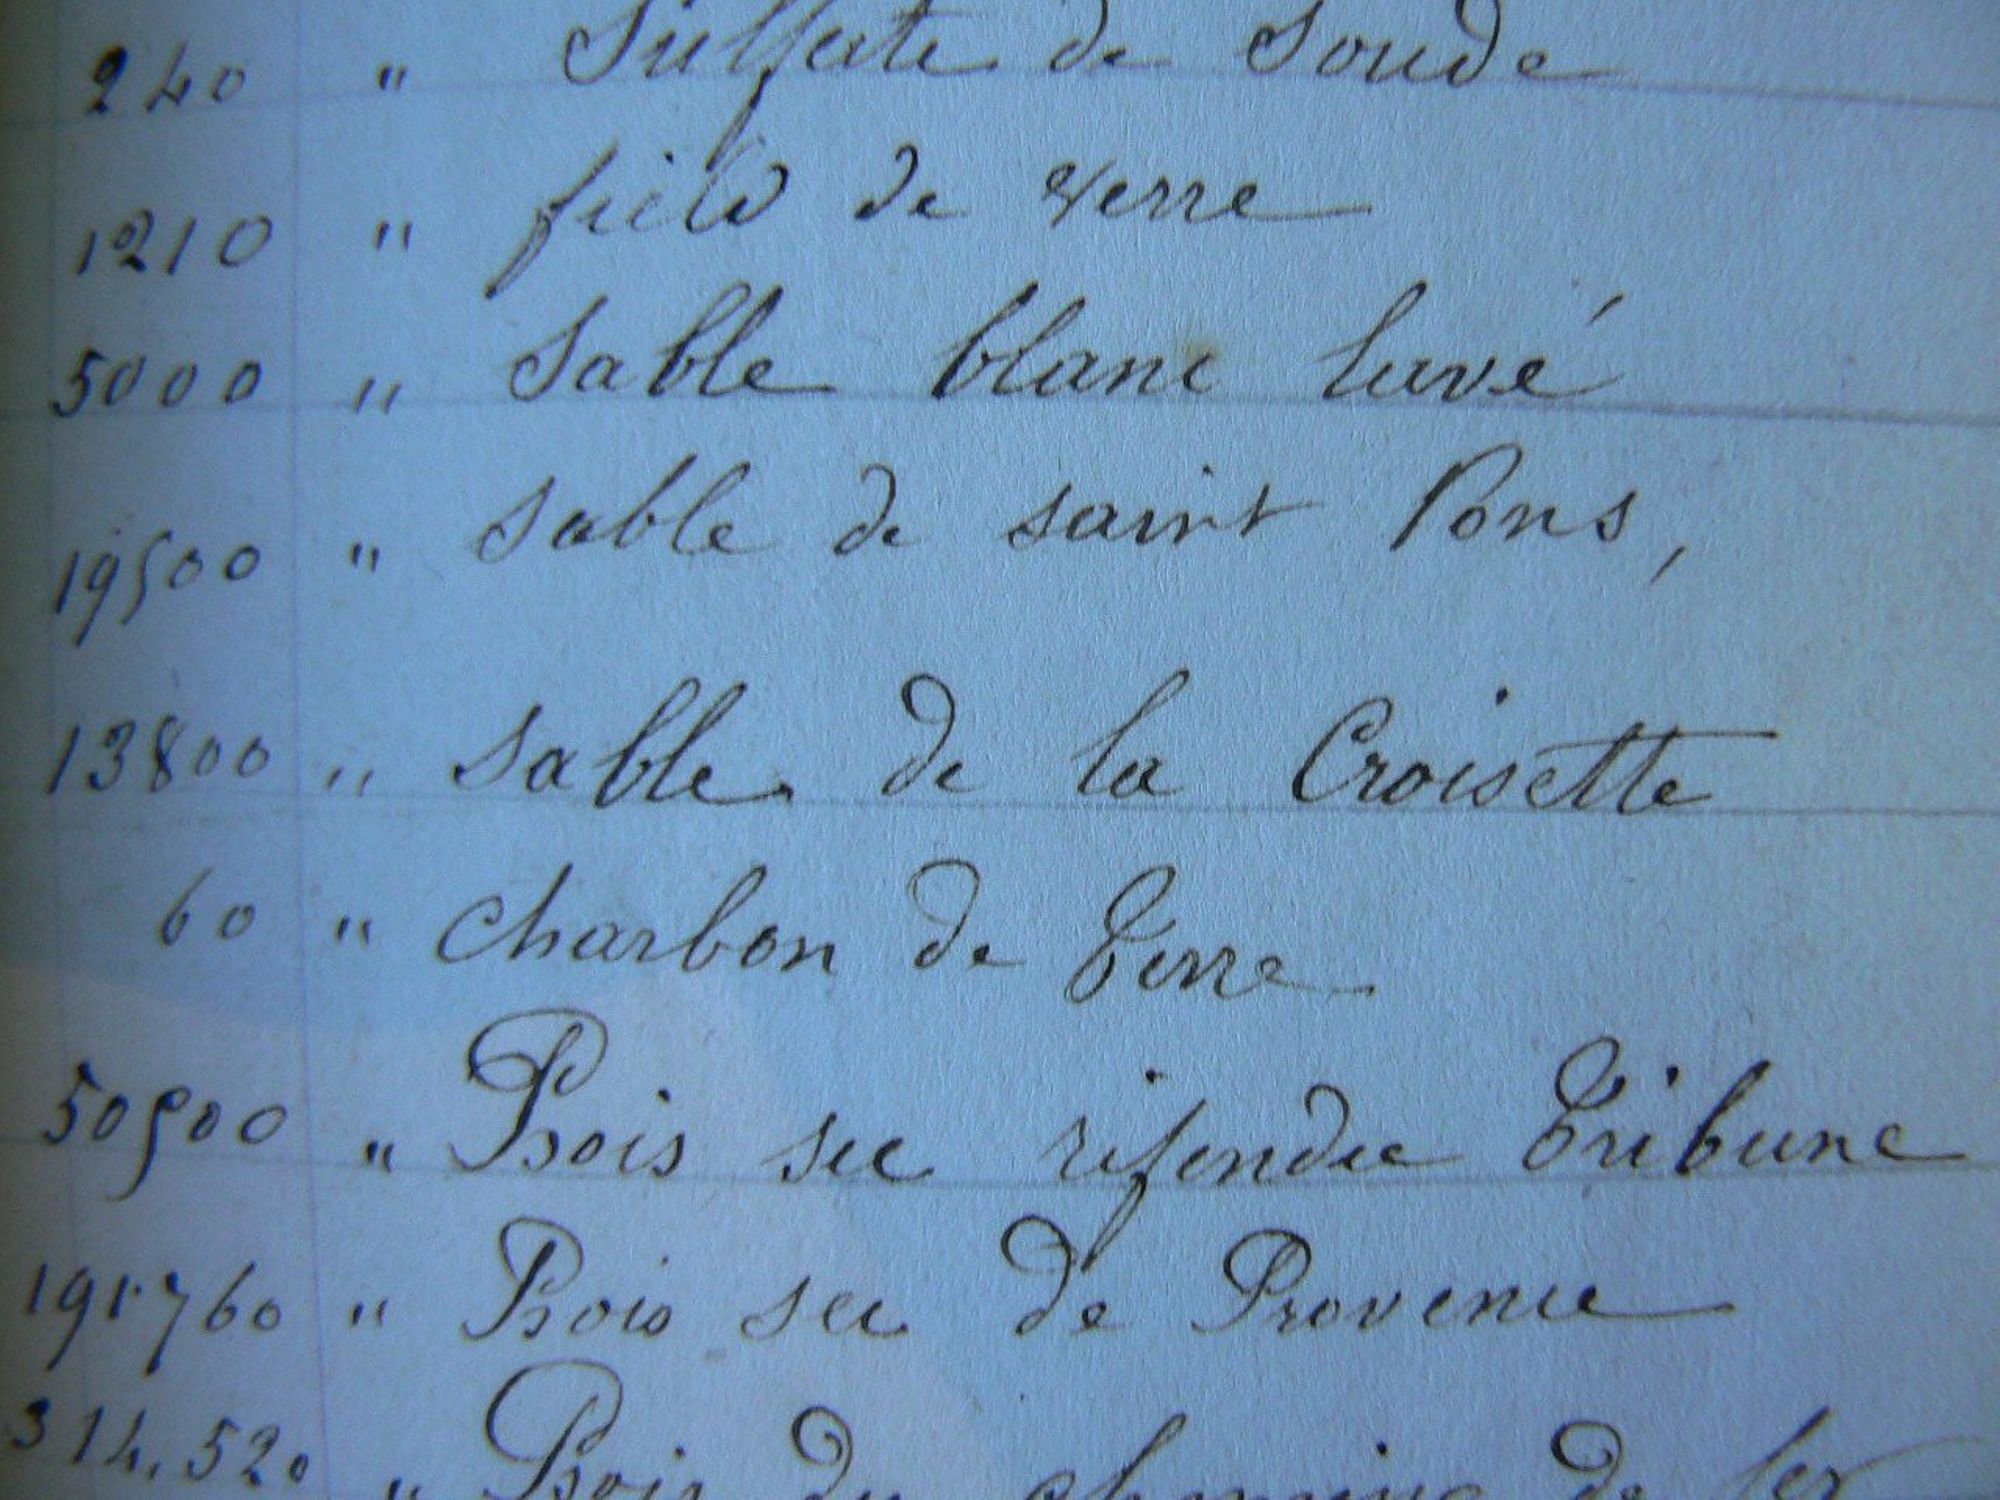 240 " Sulfate de Soude
1210 " field de verre
5000 " Sable blanc lavé
19500 " Sable de saint Pons,
13800 " Sable de la Croisette
60 " Charbon de Terre
50500 " Bois sec refendue Tribune
195760 " Bois sec de Provence
314.520 " Bois du chemins de fer